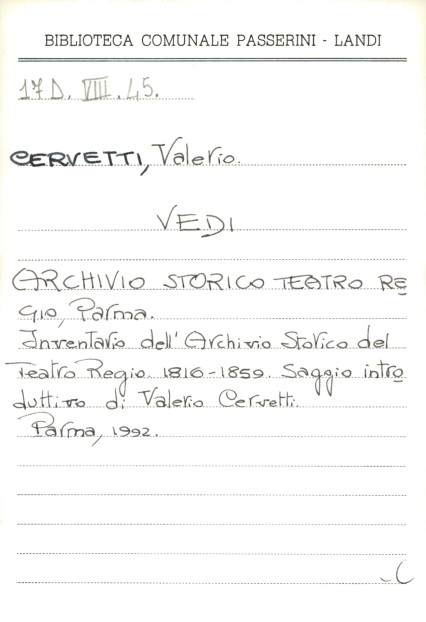 BIBLIOTECA COMUNALE PASSERINI - LANDI
17 D. VIII. 45.
CERVETTI, Valerio.
VEDI
ARCHIVIO STORICO TEATRO RE
GIO, Parma.
Inventario dell'Archivio Storico del
Teatro Regio. 1816-1859. Saggio intro
duttivo di Valerio Cervetti.
Parma, 1992.